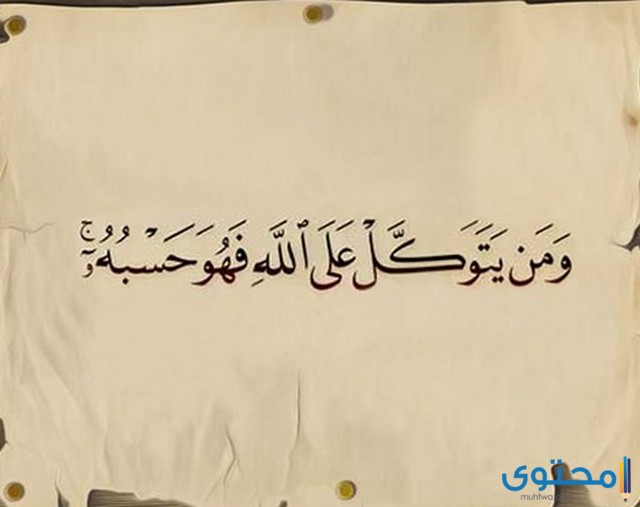 وَمَن يَتَوَكَّلْ عَلَى ٱللَّهِ فَهُوَ حَسْبُهُۥٓ ۚ
محتوى
muhtwa